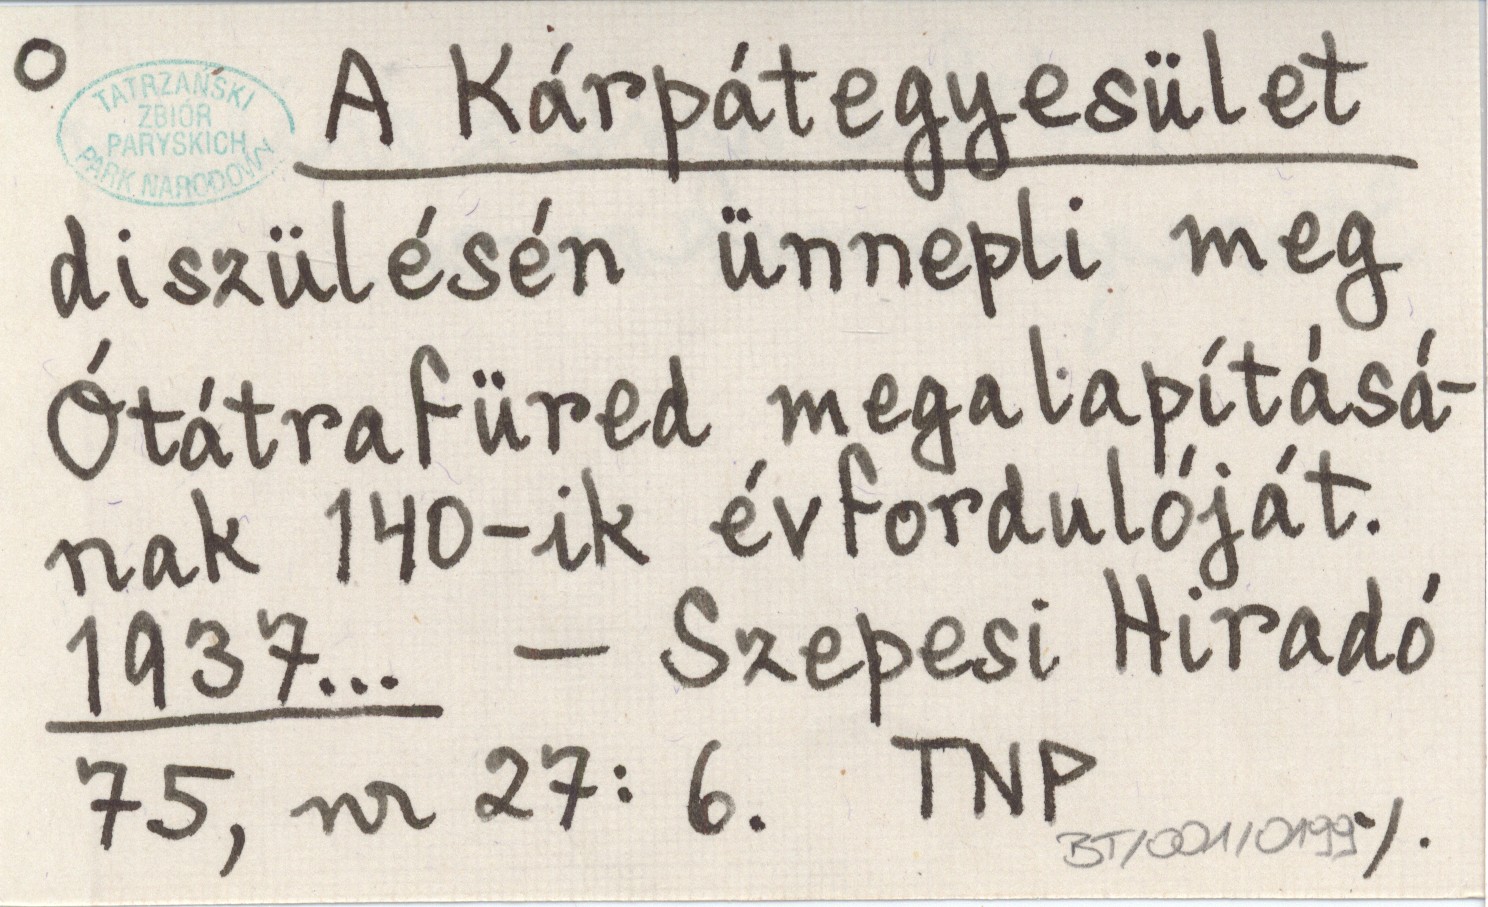 O
TATRZAŃSKI
ZBIÓR
PARYSKICH
PARK NARODOWY
A Kárpátegyesület
diszülésén ünnepli meg
Ótátrafüred megalapításá-
nak 140-ik évfordulóját.
1937... — Szepesi Hiradó
75, nr 27: 6. TNP
BT/001/0199 -/.